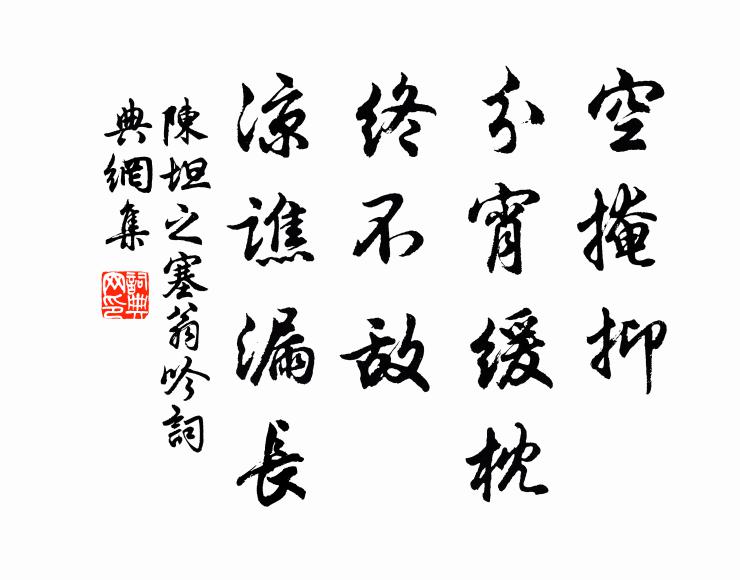 空掩抑
分宵緩枕
終不敵
涼譙漏長
陳坦之塞翁吟詞
典網集
詞典
网印